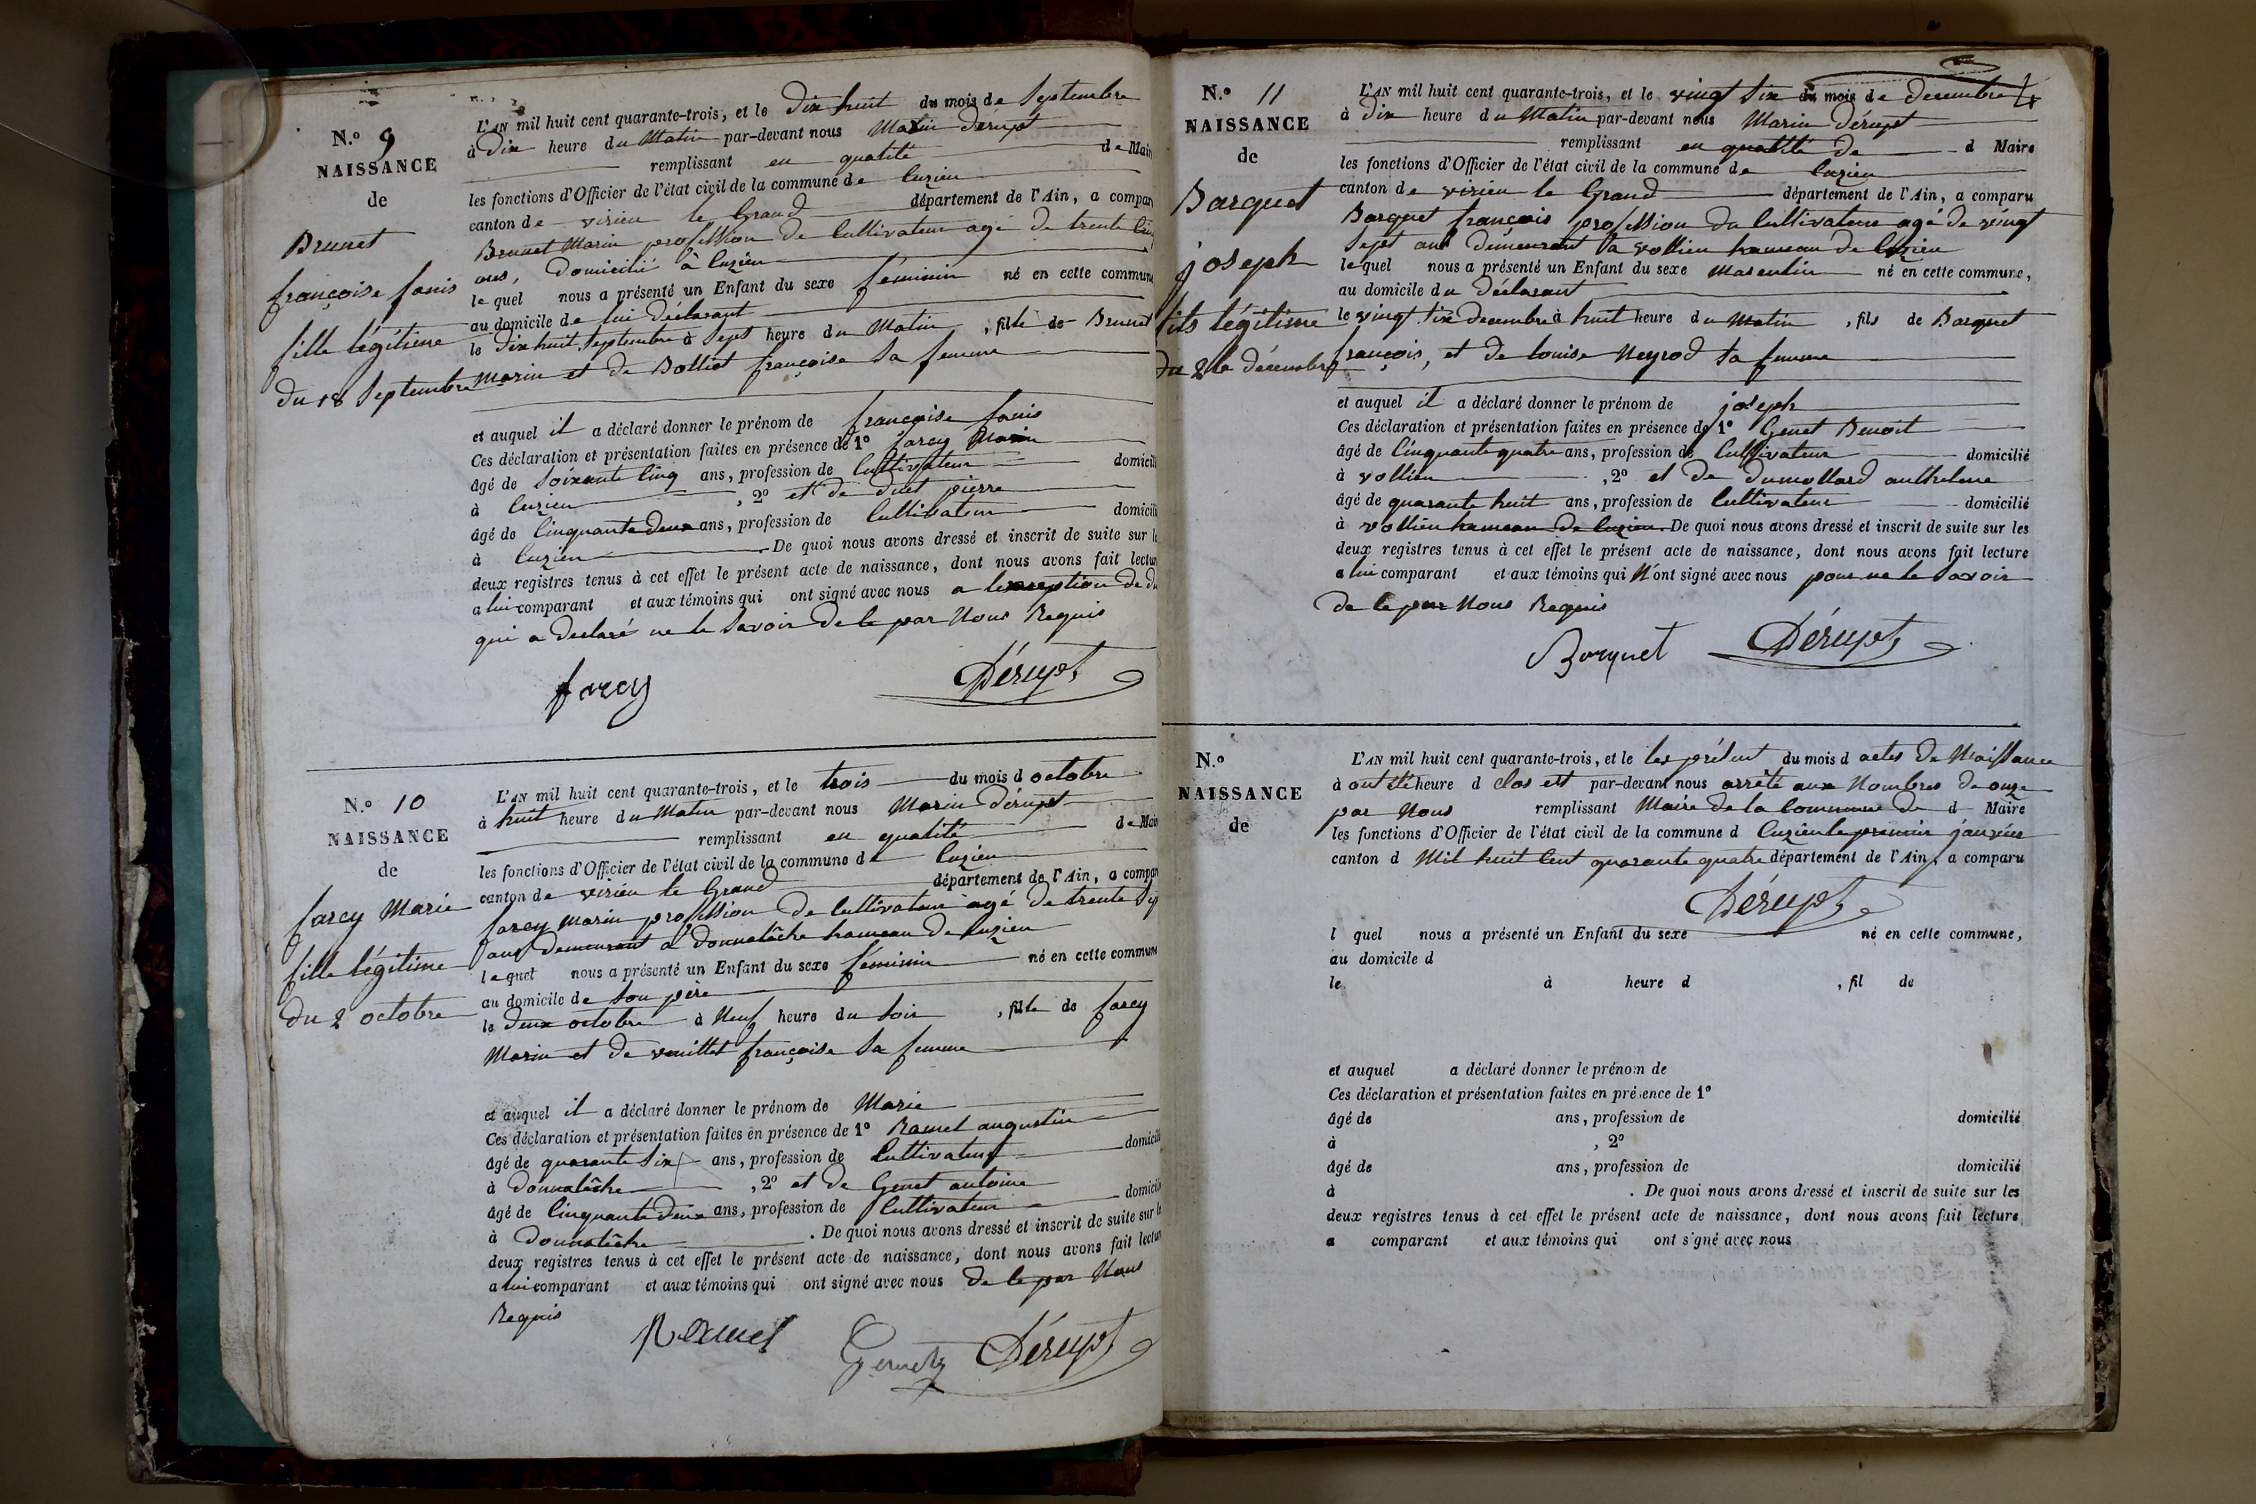 N.o 9
NAISSANCE
de
Brunet
françoise fanis
fille légitime
du 18 Septembre
L'AN mil huit cent quarante-trois, et le Dix huit du mois de Septembre
à Dix heure du Matin par-devant nous Marin Dérupt
remplissant en qualité de Mair
les fonctions d'Officier de l'état civil de la commune de Cuzieu
canton de virieu le Grand département de l'Ain, a compar
Brunet Marin profession de Cultivateur agé de trente Cinq
ans, Domicilié à Cuzieu
le quel nous a présenté un Enfant du sexe féminin né en cette commune
au domicile de lui Déclarant
le Dix huit Septembre à Sept heure du Matin, fille de Brunet
Marin et de Bolliet françoise Sa femme
et auquel il a déclaré donner le prénom de françoise fanis
Ces déclaration et présentation faites en présence de 1o farcy Marin
âgé de Soixante Cinq ans, profession de Cultivateur domicili
à Cuzieu, 2o et de duet pierre
âgé de Cinquante deux ans, profession de Cultivateur domicili
à Cuzieu. De quoi nous avons dressé et inscrit de suite sur le
deux registres tenus à cet effet le présent acte de naissance, dont nous avons fait lectur
a lui comparant et aux témoins qui ont signé avec nous a lexception de du
qui a declaré ne le Savoir de le par Nous Requis
farcy Dérupt
N.o 10
NAISSANCE
de
farcy Marie
fille légitime
du 2 octobre
L'AN mil huit cent quarante-trois, et le trois du mois d octobre
à huit heure du Matin par-devant nous Marin Dérupt
remplissant en qualité de Mair
les fonctions d'Officier de l'état civil de la commune de Cuzieu
canton de virieu le Grand département de l'Ain, a compar
farcy Marin profession de Cultivateur agé de trente Sep
ans Demeurant a Donnalêche hameau de Cuzieu
le quel nous a présenté un Enfant du sexe féminin né en cette commune
au domicile de Son père
le Deux octobre à Neuf heure du Soir, fille de farcy
Marin et de vuillet françoise Sa femme
et auquel il a déclaré donner le prénom de Marie
Ces déclaration et présentation faites en présence de 1o Ramel augustin
âgé de quarante Six ans, profession de Cultivateur domicili
à Donnalêche, 2o et de Genet antoine
âgé de Cinquante Deux ans, profession de Cultivateur domicili
à Donnalêche. De quoi nous avons dressé et inscrit de suite sur le
deux registres tenus à cet effet le présent acte de naissance, dont nous avons fait lectur
a lui comparant et aux témoins qui ont signé avec nous de le par Nous
Requis
Ramel Genety Dérupt
N.o 11
NAISSANCE
de
Barquet
joseph
fils légitime
du 26 décembre
L'AN mil huit cent quarante-trois, et le vingt Six du mois de decembre
à Dix heure du Matin par-devant nous Marin Dérupt
remplissant en qualité de d Maire
les fonctions d'Officier de l'état civil de la commune de Cuzieu
canton de virieu le Grand département de l'Ain, a comparu
Barquet françois profession du Cultivateur agé de vingt
Sept ans Demeurant Sa vollien hameau de Cuzieu
le quel nous a présenté un Enfant du sexe Masculin né en cette commune,
au domicile du Déclarant
le vingt Six decembre à huit heure du Matin, fils de Barquet
françois, et de Louise Neyrod Sa femme
et auquel il a déclaré donner le prénom de joseph
Ces déclaration et présentation faites en présence de 1o Genet Benoit
âgé de Cinquante quatre ans, profession de Cultivateur domicilié
à vollien, 2o et de Dumollard anthelme
âgé de quarante huit ans, profession de Cultivateur domicilié
à vollien hameau de Cuzieu. De quoi nous avons dressé et inscrit de suite sur les
deux registres tenus à cet effet le présent acte de naissance, dont nous avons fait lecture
a lui comparant et aux témoins qui N'ont signé avec nous pour ne le Savoir
de le par Nous Requis
Borquet Dérupt
N.o
NAISSANCE
de
L'AN mil huit cent quarante-trois, et le les présent du mois d actes de Naissance
à ont été heure d clos est par-devant nous arrêté aux Nombres de onze
par Nous remplissant Maire de la Commune de d Maire
les fonctions d'Officier de l'état civil de la commune d Cuzieu le premier janvier
canton d Mil huit Cent quarante quatre département de l'Ain, a comparu
Dérupt
l quel nous a présenté un Enfant du sexe né en cette commune,
au domicile d
le à heure d, fil de
et auquel a déclaré donner le prénom de
Ces déclaration et présentation faites en présence de 1o
âgé de ans, profession de domicilié
à, 2o
âgé de ans, profession de domicilié
à. De quoi nous avons dressé et inscrit de suite sur les
deux registres tenus à cet effet le présent acte de naissance, dont nous avons fait lecture
a comparant et aux témoins qui ont signé avec nous